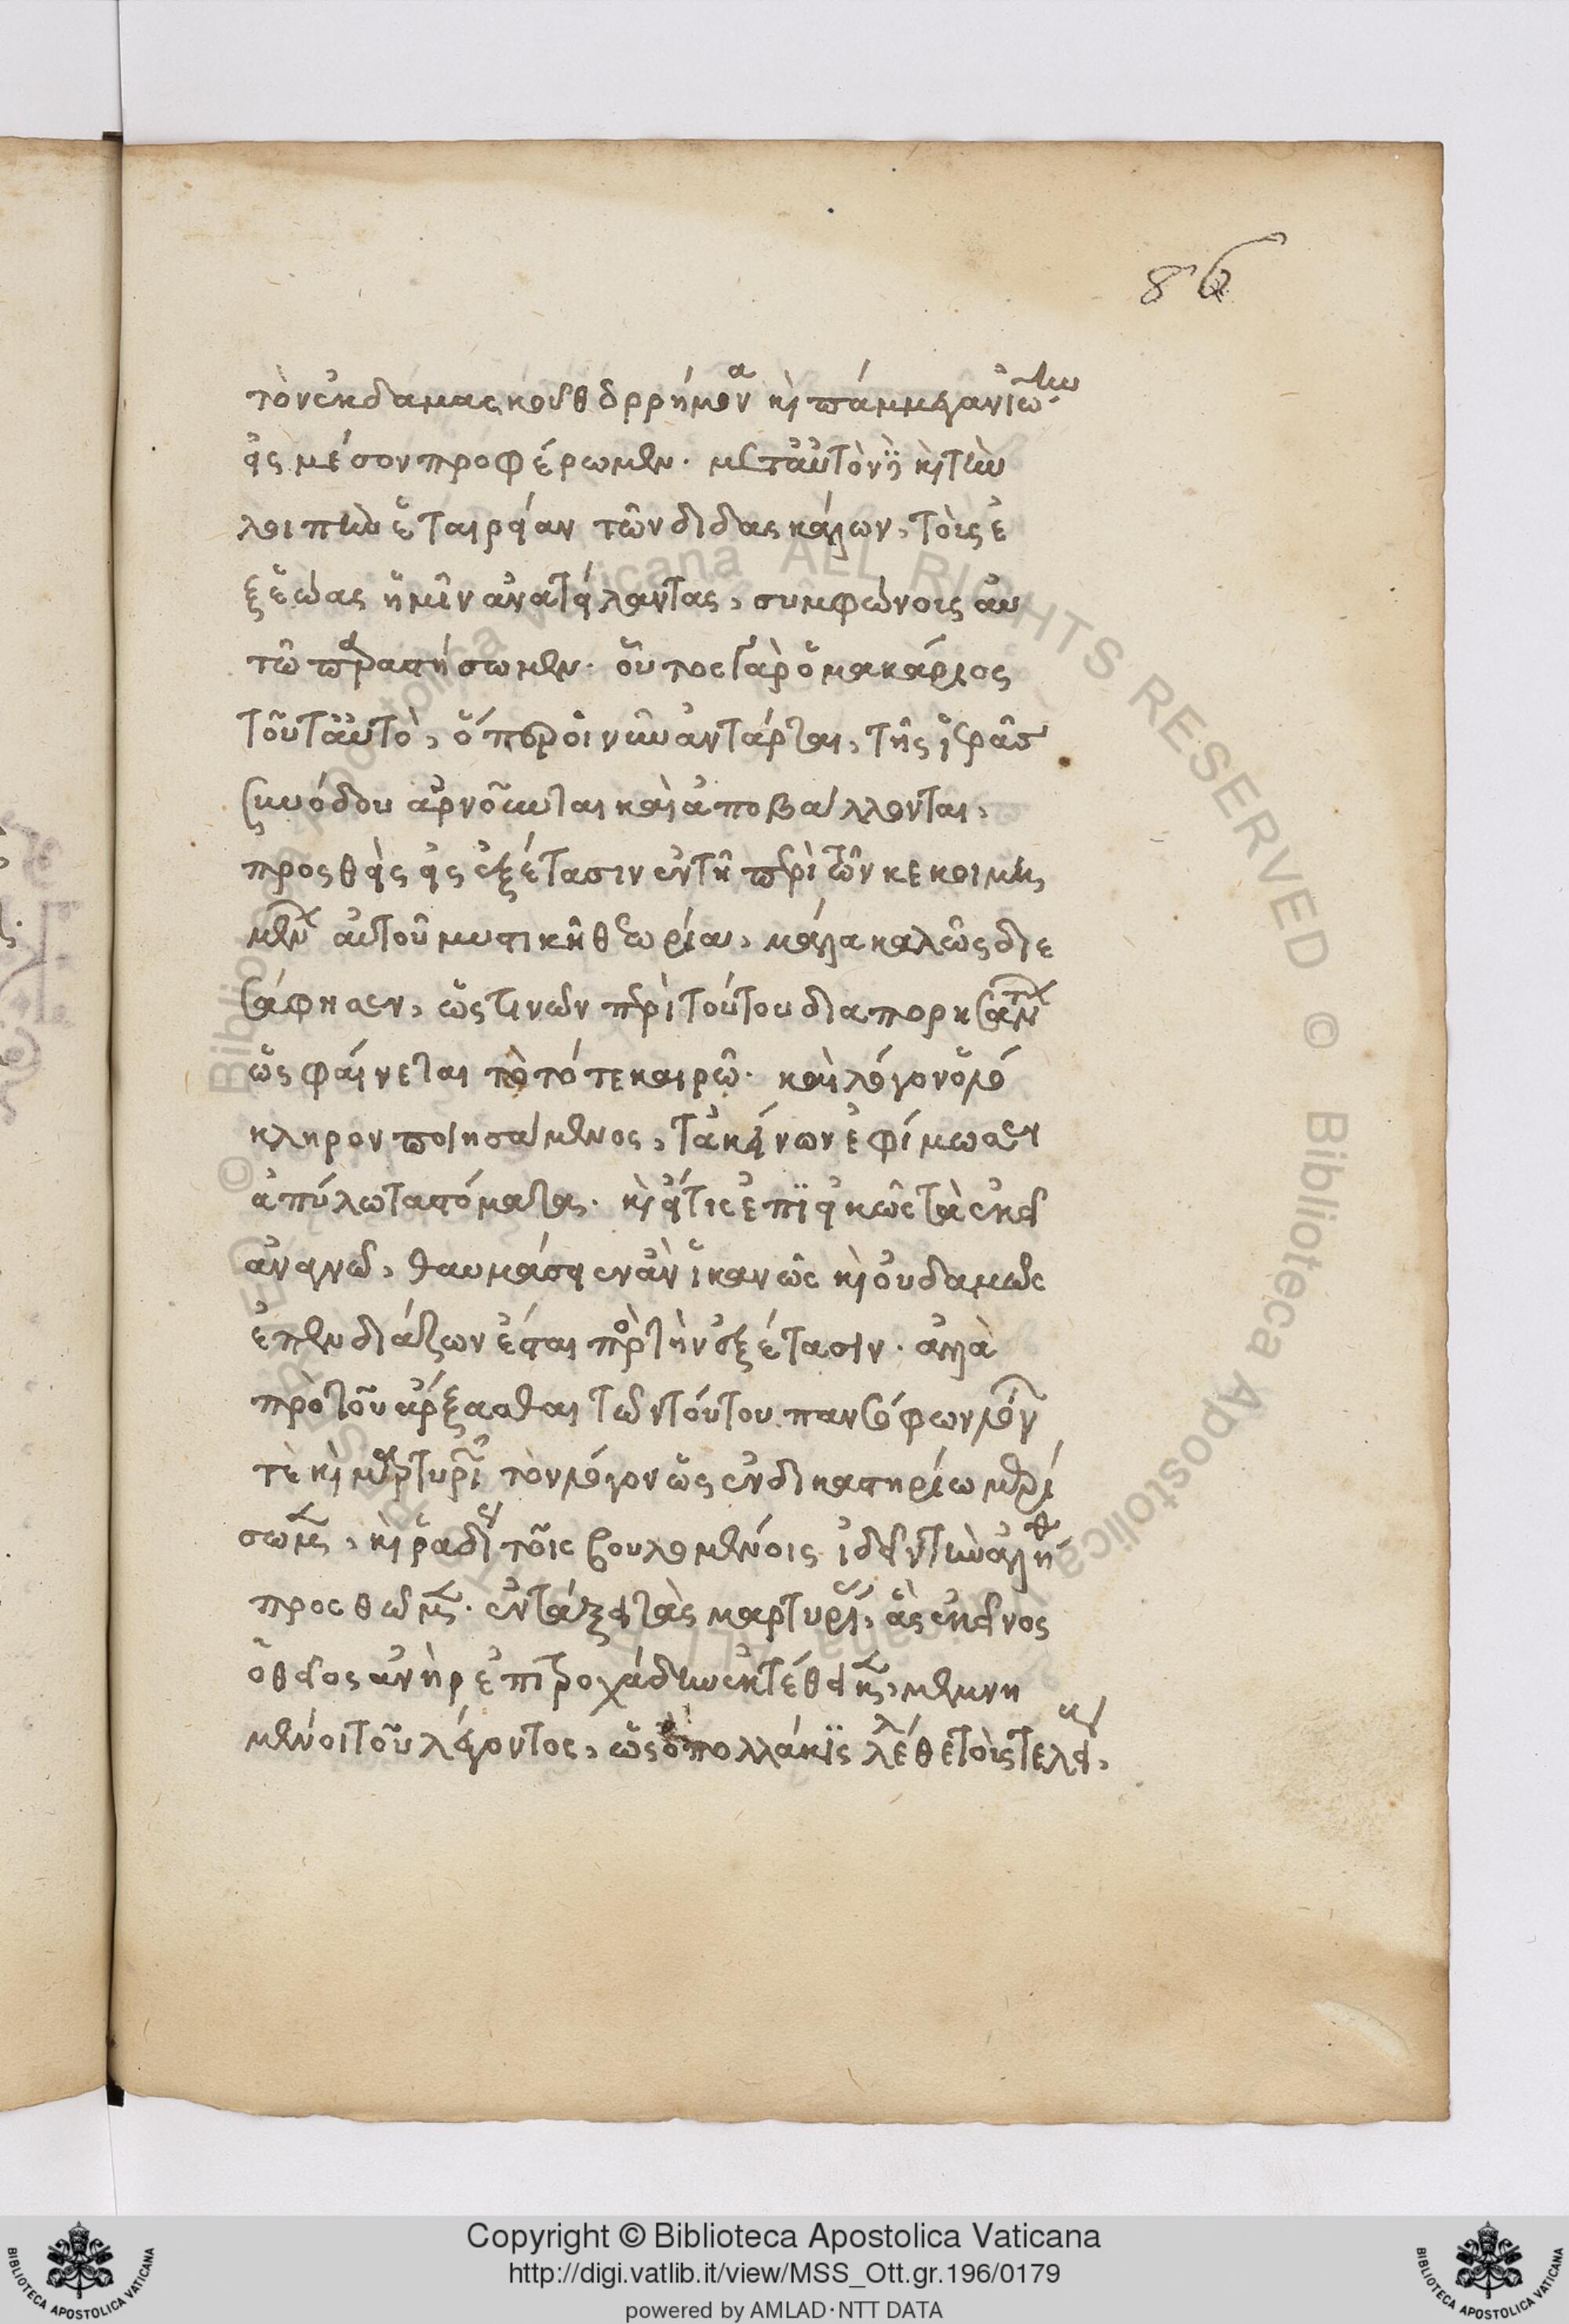 86
τὸν ἐκ δαμασκοῦ θεορρήμονα κὶ πάμμεγαν ἰω
εἰς μέσον προφέρωμεν. μετ αὐτὸν δὲ κὶ τὴν
λοιπὴν ἑταιρείαν τῶν διδασκάλων, τοῖς ἐ
ξ ἑώας ἡμῖν ἀνατείλαντας, συμφώνοις αὐ
τῶ παραστήσωμεν. οὗτος γὰρ ὁ μακάριος
τοῦτ αὐτὸ, ὅπερ οἱ νῦν ἀντάρται, τῆς ἱερᾶς
συνόδου ἀρνοῦνται καὶ ἀποβάλλονται,
προσθεὶς εἰς ἐξέτασιν ἐν τῆ περὶ τῶν κεκοιμη
μένων αὐτοῦ μυστικῆ θεωρία, μάλα καλῶς διε
σάφησεν, ὥς τινων περὶ τούτου διαπορησάντων
ὡς φαίνεται τὸ τότε καιρῶ. καὶ λόγον ὁλό
κληρον ποιησάμενος, τἀκείνων ἐφίμωσεν
ἀπύλωτα στόματα. κὶ εἴ τις ἐπιεικῶς τὰ ἐκεῖ
ἀναγνῶ, θαυμάσειεν ἂν ἱκανῶς κὶ οὐδαμῶς
ἐπενδιάζων ἔσται πρὸς τὴν ἐξέτασιν. ἀλλὰ
πρὸ τοῦ ἄρξασθαι τῶν τούτου πανσόφων λόγων
τὲ κὶ μαρτυριῶν τὸν λόγον ὡς ἐν δικαστηρίω μερί
σωμεν, κὶ ῥαδίως τοῖς βουλομένοις ἰδεῖν τὴν ἀλήθ
προσθῶμεν. ἐν τάξει τὰς μαρτυρίας, ἃς ἐκεῖνος
ὁ θεῖος ἀνὴρ ἐπιτροχάδην ἐκτέθεικεν, μεμνη
μένοι τοῦ λέγοντος, ὡς ὁ πολλάκις λέθε τοῖς τελεί
Copyright © Biblioteca Apostolica Vaticana
http://digi.vatlib.it/view/MSS_Ott.gr.196/0179
powered by AMLAD·NTT DATA
BIBLIOTECA APOSTOLICA VATICANA
BIBLIOTECA APOSTOLICA VATICANA
© Biblioteca Apostolica Vaticana ALL RIGHTS RESERVED